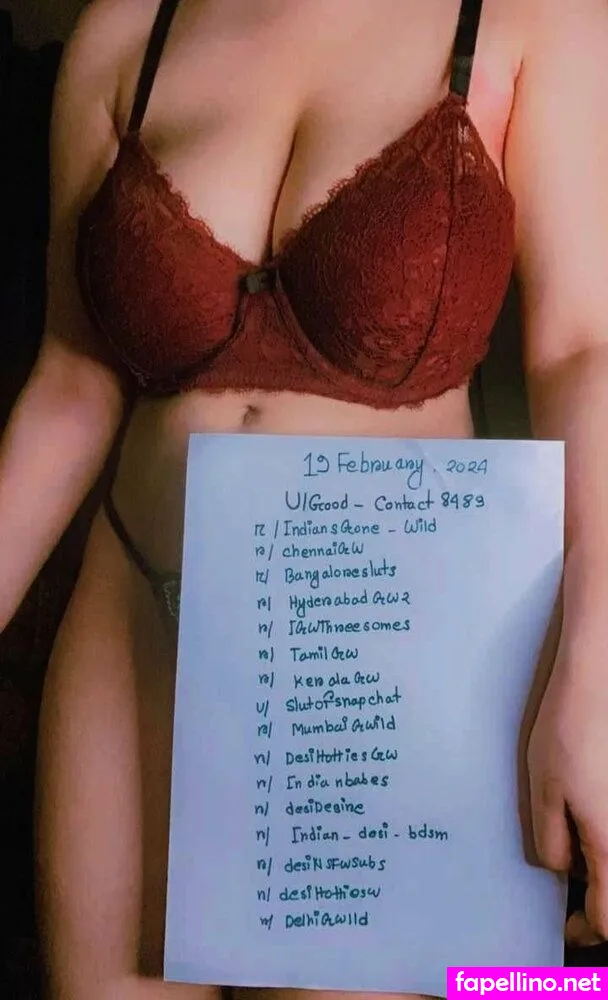 19 February. 2024
U/Good - Contact 8489
r/IndiansGone - Wild
r/chennaiGW
r/Bangaloresluts
r/HyderabadGW2
r/IGWThreesomes
r/TamilGW
r/KeralaGW
u/slutofsnapchat
r/MumbaiGwild
r/DesiHottiesGW
r/Indianbabes
r/desiDesire
r/Indian-desi-bdsm
r/desiNSFWSubs
r/desiHottiesw
r/DelhiGWild
fapellino.net